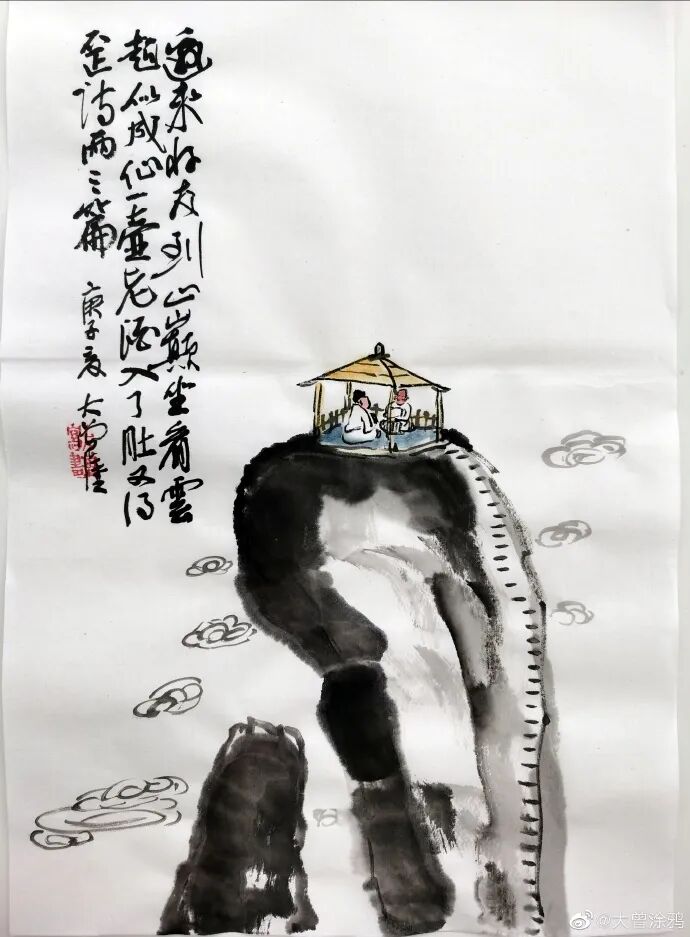 邀来好友到山巅坐看雲
起似成仙一壶老酒入了肚又得
歪诗两三篇 庚子夏 大曾
@大曾涂鸦